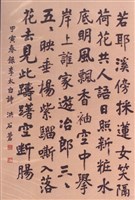 若耶溪傍採蓮女笑隔
荷花共人語日照新粧水
底明風飄香袖空中舉
岸上誰家遊冶郎三々
五々映垂楊紫騮嘶入落
花去見此躊躇空斷腸
甲寅春錄李太白詩